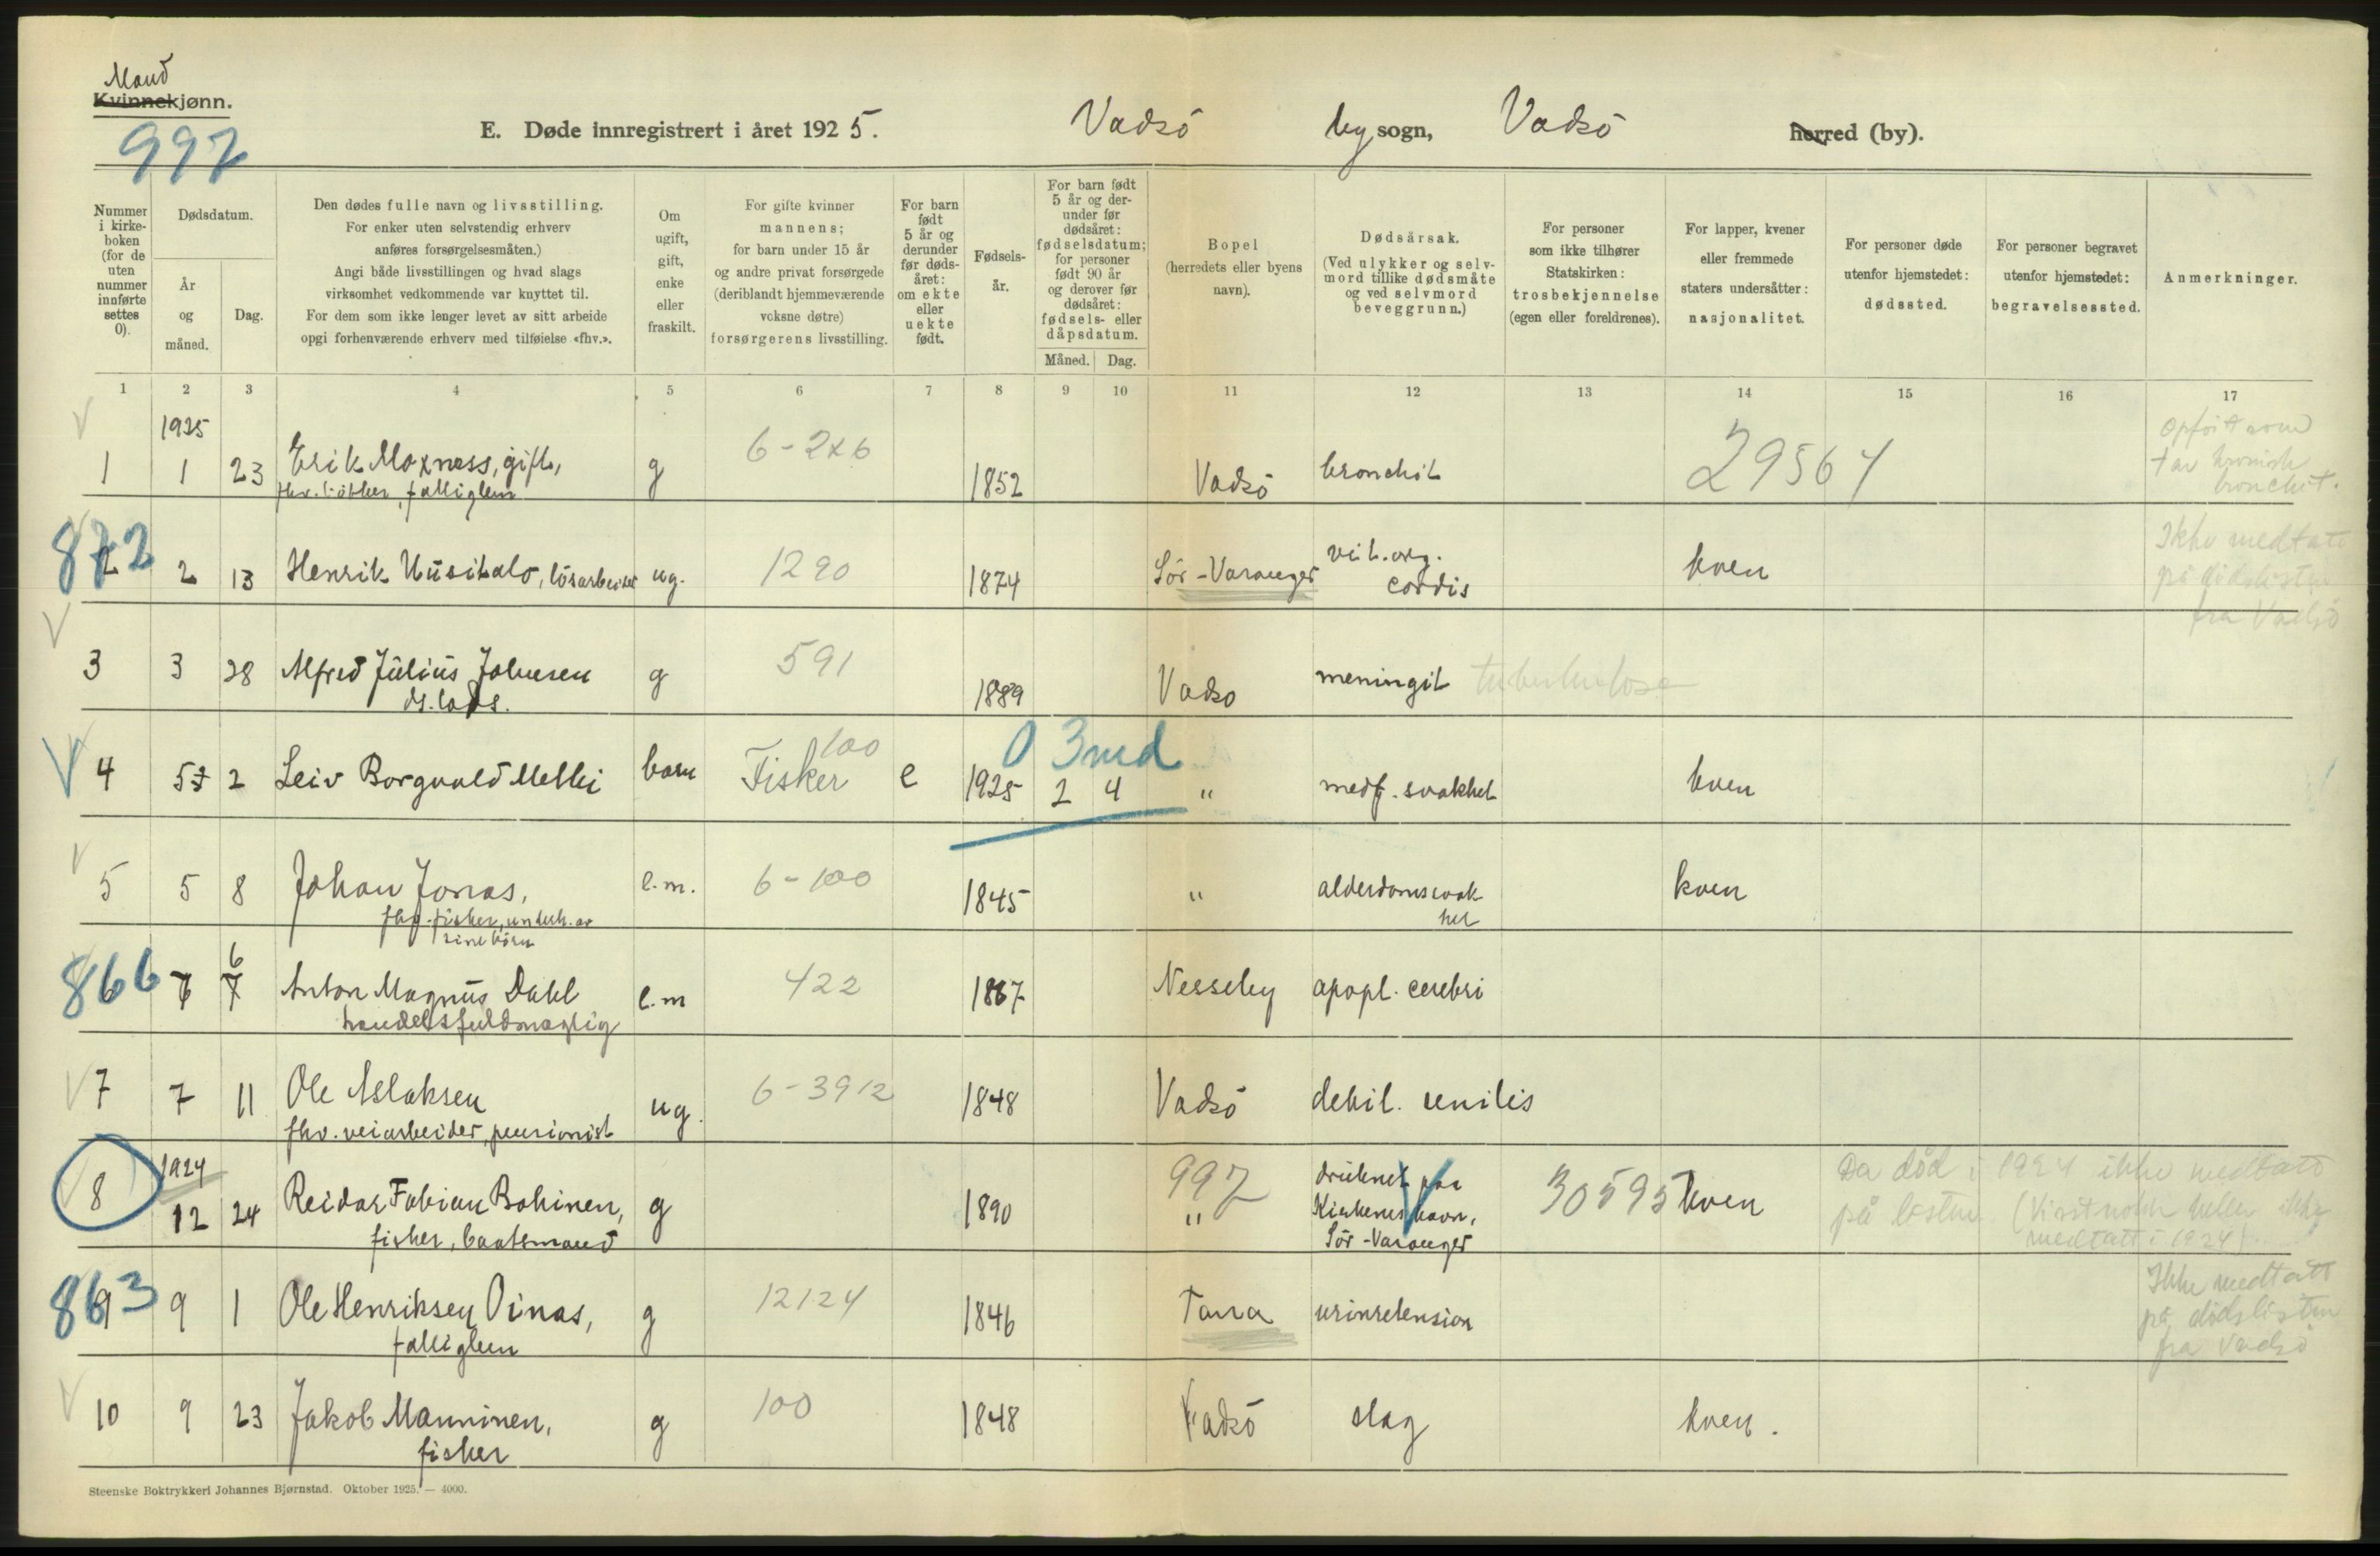 Mand
Kvinnekjønn.
997
E. Døde innregistrert i året 1925.
Vadsö by sogn, Vadsö herred (by).
Nummer i kirkeboken (for de uten nummer innførte settes 0).
Dødsdatum.
År og måned.
Dag.
Den dødes fulle navn og livsstilling.
For enker uten selvstendig erhverv
anføres forsørgelsesmåten.)
Angi både livsstillingen og hvad slags
virksomhet vedkommende var knyttet til.
For dem som ikke lenger levet av sitt arbeide
opgi forhenværende erhverv med tilføielse «fhv.».
Om ugift, gift, enke eller fraskilt.
For gifte kvinner
mannens;
for barn under 15 år
og andre privat forsørgede
(deriblandt hjemmeværende
voksne døtre)
forsørgerens livsstilling.
For barn født 5 år og derunder før dødsåret: om ekte eller uekte født.
Fødselsår.
For barn født 5 år og derunder før dødsåret: fødselsdatum; for personer født 90 år og derover før dødsåret: fødsels- eller dåpsdatum.
Måned. Dag.
Bopel
(herredets eller byens
navn).
Dødsårsak.
(Ved ulykker og selvmord tillike dødsmåte
og ved selvmord
beveggrunn.)
For personer
som ikke tilhører
Statskirken:
trosbekjennelse
(egen eller foreldrenes).
For lapper, kvener
eller fremmede
staters undersåtter:
nasjonalitet.
For personer døde
utenfor hjemstedet:
dødssted.
For personer begravet
utenfor hjemstedet:
begravelsessted.
Anmerkninger.
1 2 3 4 5 6 7 8 9 10 11 12 13 14 15 16 17
1925
1 1 23 Erik Moxness, gift, g 6-2x6 1852 Vadsö bronchit 29564
fattiglem
opført som
† av kronisk
bronchit.
872
2 2 13 Henrik Uusitalo, lösarbeider ug. 1290 1874 Sör-Varanger vit. org.
cordis kven
Ikke medtatt
på dødslisten
fra Vadsö
3 3 28 Alfred Julius Johnsen g 591 1889 Vadsö meningit tuberkulose
0 3 md
4 5 2 Leiv Borgvald Methi barn Fisker 100 e 1925 2 4 " medf. svakhet kven
5 5 8 Johan Jonas, e.m. 6-100 1845 " alderdomssvak
het kven
fhv. fisker, underh. av
sine börn
866
6
7 Anton Magnus Dahl e.m 422 1867 Nesseby apopl. cerebri
handelsfuldmægtig
7 7 11 Ole Aslaksen ug. 6-3912 1848 Vadsö debil. senilis
fhv. veiarbeider, pensionist
1924
8 12 24 Reidar Fabian Bohinen, g 997 1890 " druknet paa
Kirkenes havn,
Sör-Varanger 30595 kven
fisker, baatsmand
Da død i 1924 ikke medtatt
på listen (Visstnokk heller ikke
medtatt i 1924)
863
9 9 1 Ole Henriksen Oinas, g 12124 1846 Tana urinretension
fattiglem
Ikke medtatt
på dødslisten
fra Vadsö
10 9 23 Jakob Manninen, g 100 1848 Vadsö slag kven.
fisker
Steenske Boktrykkeri Johannes Bjørnstad. Oktober 1925. — 4000.